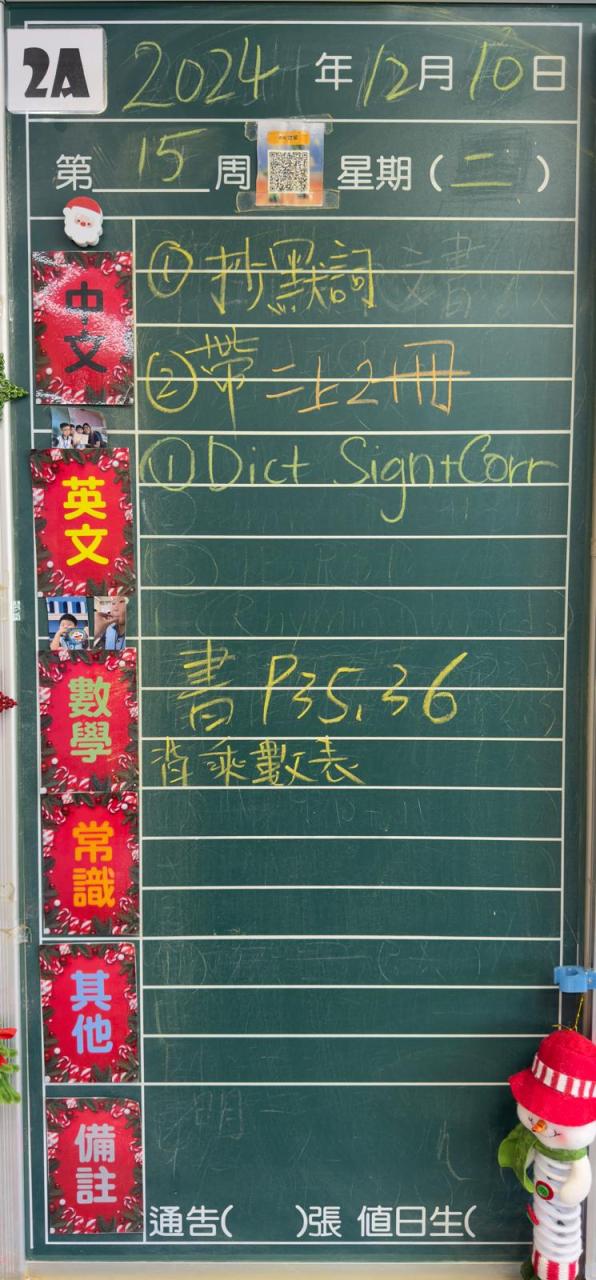 2A
2024年12月10日
第15周 星期(二)
中文
① 抄默詞
② 帶二上2冊
英文
① Dict Sign+Corr
數學
書 P35, 36
背乘數表
常識
其他
備註
通告( )張 值日生(